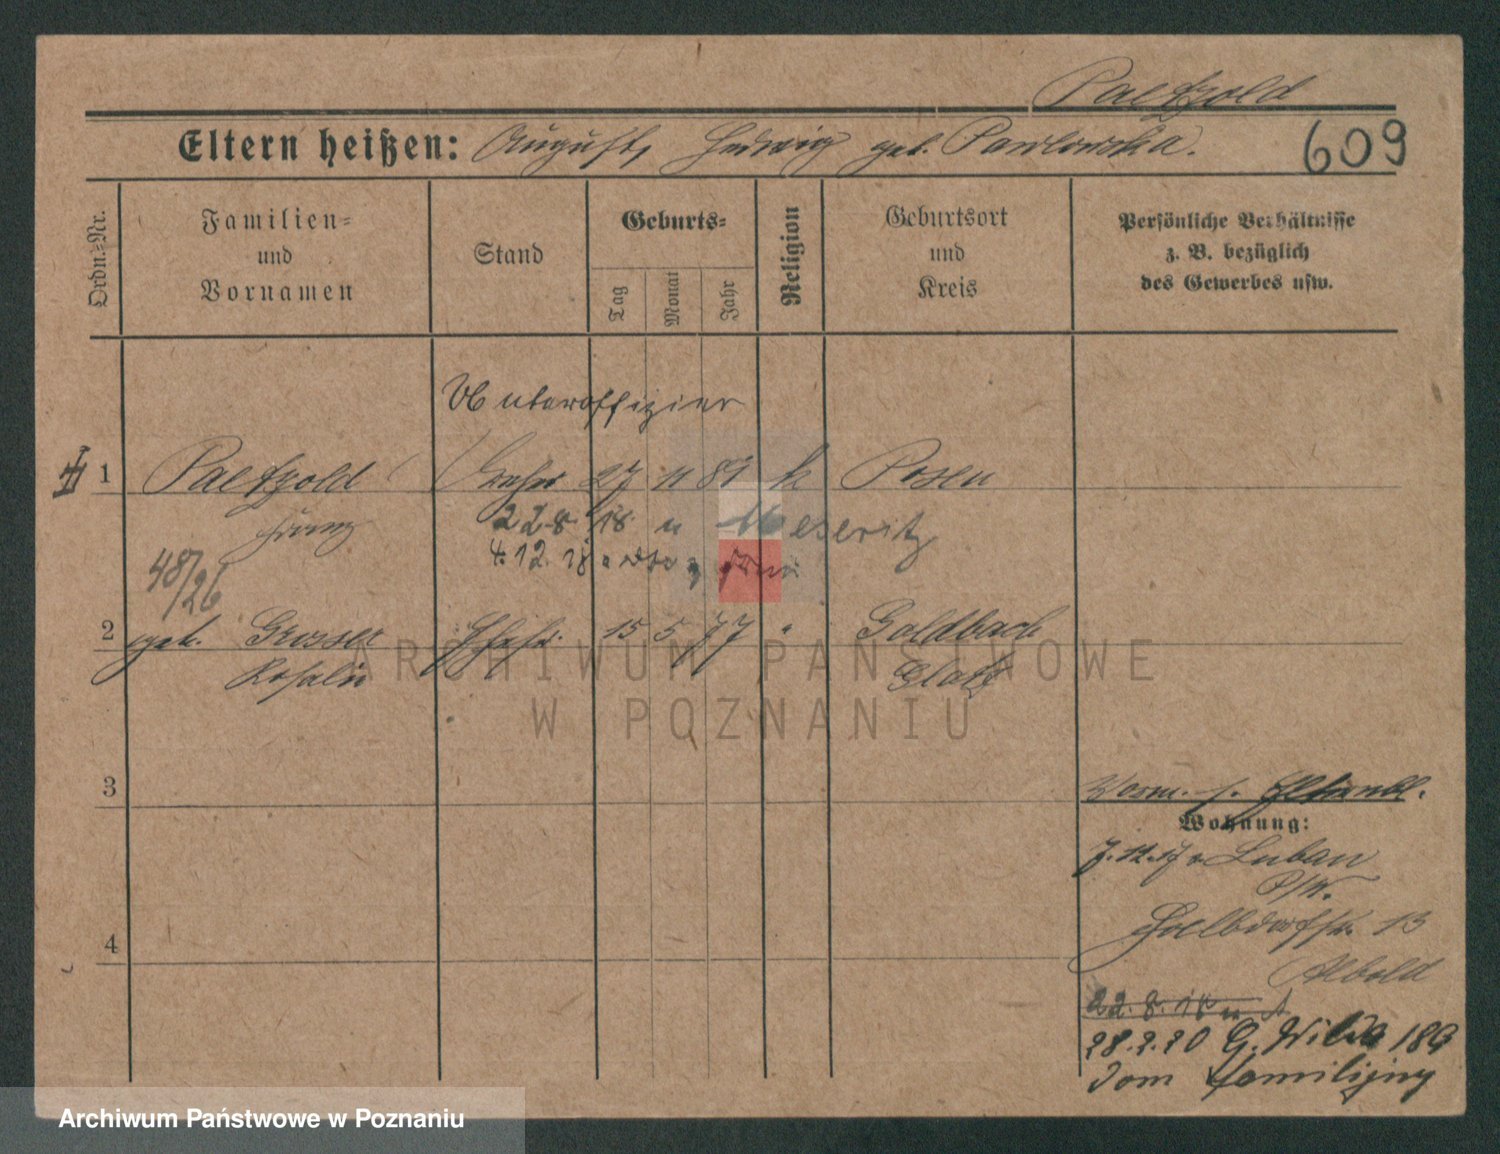 Paetzold
Eltern heißen: August, Hedwig geb. Pawlowska.
609
Ordn.-Nr.
Familien-
und
Vornamen
Stand
Geburts-
Tag
Monat
Jahr
Religion
Geburtsort
und
Kreis
Persönliche Verhältnisse
z. B. bezüglich
des Gewerbes usw.
Unteroffizier
1 Paetzold 27 11 89 k Posen
Franz 22.8.18 n Meseritz
4.12.18
48/26
2 geb. Grosser Ehefr. 15 5 77 " Goldbach
Rosalie Glatz
ARCHIWUM PAŃSTWOWE
W POZNANIU
3
Wohnung:
7.12.17 v Luban
P/W.
13
22.8.18 n
4
28.2.20 G. Wilda 189
Dom familijny
Archiwum Państwowe w Poznaniu